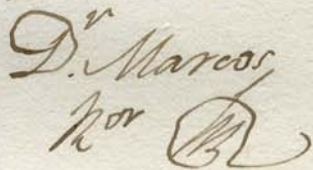 Dr. Marcos
por